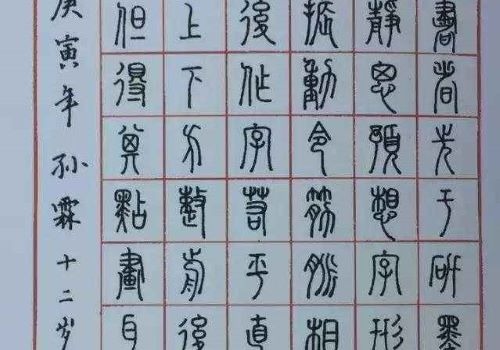 書者先于研墨
靜思預想字形
振動令筋脈相
後作字若平直
上下方整前後
但得其點畫耳
庚寅年孙霖十二岁